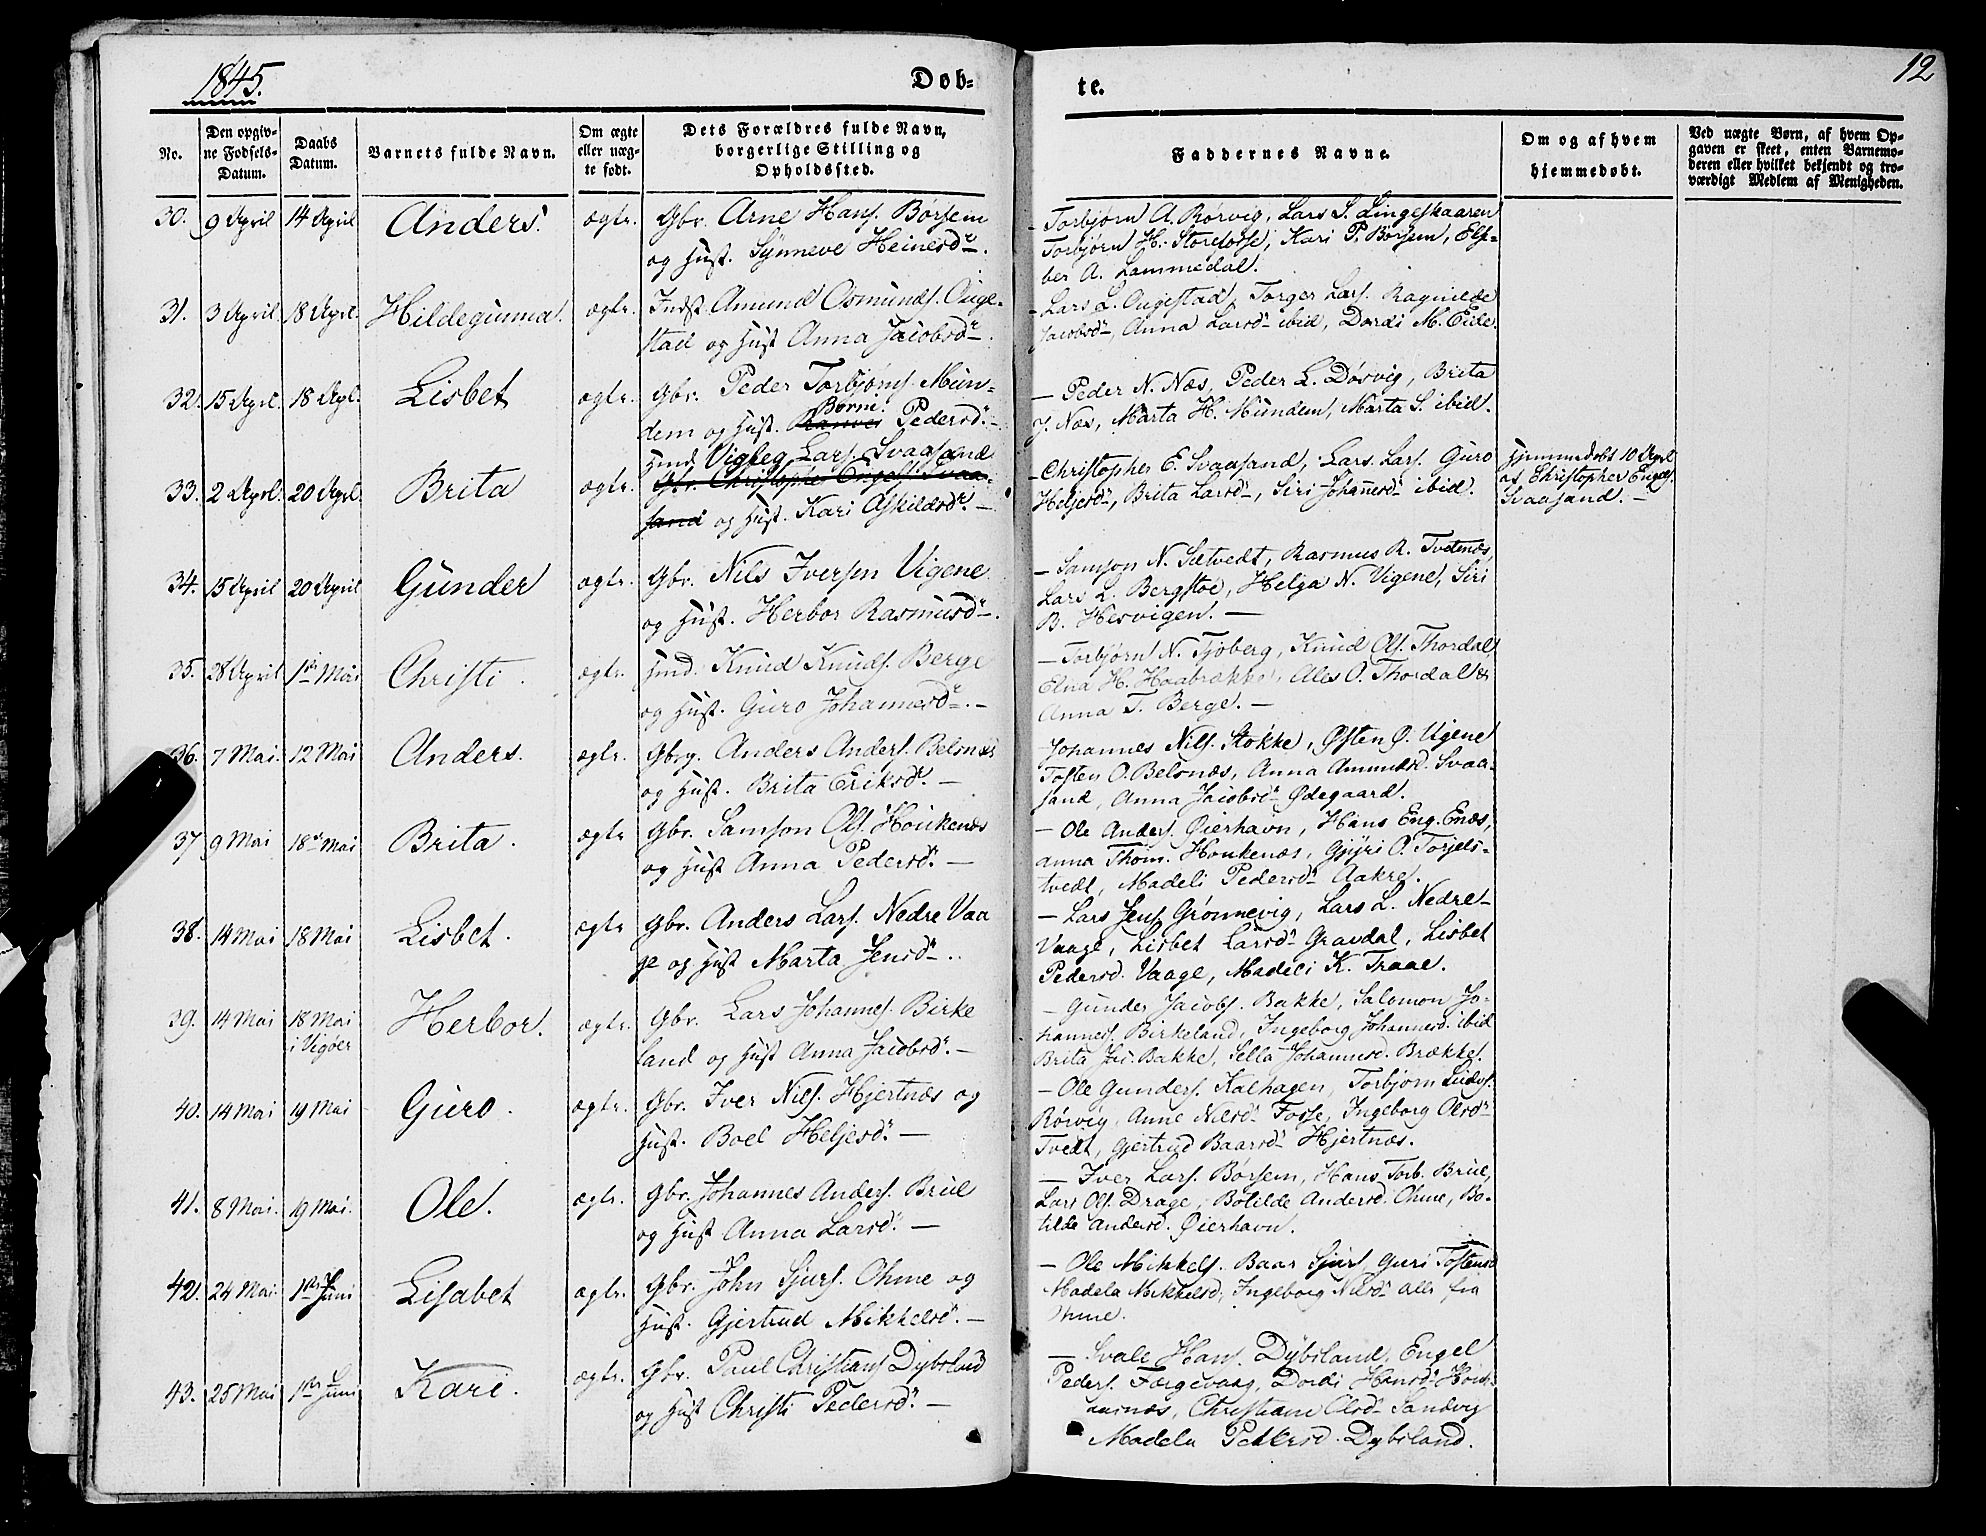 1845.
Døb=
te.
12
No.
Den opgiv-
ne Fødsels-
Datum.
Daabs
Datum.
Barnets fulde Navn.
Om ægte
eller uæg-
te født.
Dets Forældres fulde Navn,
borgerlige Stilling og
Opholdssted.
Faddernes Navne.
Om og af hvem
hjemmedøbt.
Ved uægte Børn, af hvem Op-
gaven er skeet, enten Barnemo-
deren eller hvilket bekjendt og tro-
værdigt Medlem af Menigheden.
30. 9 April 14 April Anders. ægte. Gbr. Arne Hans. Børsem
og Hust. Synneve Heinesdr.
- Torbjørn A. Rørvig, Lars S. Lingeskaaren
Torbjørn H. Storefosse, Kari P. Børsem, Els-
ber A. Lammedal.
31. 3 April 18 April Hildegunna. ægte. Indst Amund Osmunds. Ouge-
stad og Hust Anna Jacobsdr.
- Lars L. Ougestad, Torger Lars. Ragnilde
Jacobsdr, Anna Larsdr ibid, Dordi M. Eide.
32. 15 Apri. 18 Apl. Lisbet ægte. Gbr. Peder Torbjørns. Mun-
Borni.
dem og Hust. Pedersdr.
- Peder N. Næs, Peder L. Døsvig, Brita
J. Næs, Marta H. Mundem, Marta S. ibid.
33. 2 Aprl. 20 Apl. Brita ægte. Hmd Vigleg Lars. Svaasand
Gbr. Christopher Engels. Svaa-
sand og Hust. Kari Askildsdr.
- Christopher E. Svaasand, Lars Lars. Guro
Heljesdr, Brita Larsdr, Siri Johannesdr ibid.
Hjemmedøbt 10 Aprl
af Christopher Engels.
Svaasand. -
34. 15 April 20 April Gunder ægte. Gbr. Nils Iversen Vigene
og Hust. Herbor Rasmusdr.
- Samson N. Sætvedt, Rasmus R. Tvetenæs,
Lars L. Bergstøe, Helga N. Vigene, Siri
B. Hesvigen. -
35. 28 April 1ste Mai Christi. ægte. Hmd. Knud Knuds. Berge
og Hust. Guro Johannesdr. -
- Torbjørn N. Tjoberg, Knud Ols. Thordal
Elna H. Haabrække, Ales O. Thordal &
Anna T. Berge. -
36. 7 Mai. 12 Mai Anders. ægte. Gbrg. Anders Anders. Belsnæs
og Hust. Brita Eriksdr. -
Johannes Nils. Stokke, Østen Ø. Vigene
Tosten O. Belsnæs, Anna Ammundsd. Svaa-
sand, Anna Jacobsdr Ødegaard.
37 9 Mai 18de Mai Brita. ægte Gbr. Samson Ols. Houkenæs
og Hust Anna Pedersdr. -
- Ole Anders. Øierhavn, Hans Eng. Enæs,
Anna Thom. Houkenæs, Gjyri O. Torjels-
tvedt, Madeli Pedersdr Aakre.
38. 14 Mai 18 Mai Lisbet. ægte Gbr. Anders Lars. Nedre Vaa
ge og Hust Marta Jensdr.
- Lars Jens Grønnevig, Lars L. Nedre-
Vaage, Lisbet Larsdr Gravdal, Lisbet
Pedersd. Vaage, Madeli K. Traae.
39. 14 Mai 18 Mai Herbor. ægte. Gbr. Lars Johannes. Birke
i Vigøer
land og Hust Anna Jacobsdr. -
- Gunder Jacobs. Bakke, Salomon Jo-
hannes. Birkeland, Ingeborg Johannesd. ibid
Brita Jac. Bakke, Sella Johannesd. Brække.
40. 14 Mai 19 Mai Guro. ægte. Gbr. Iver Nils. Hjertnæs og
Hust. Boel Heljesdr. -
- Ole Gunders. Kalhagen, Torbjørn
Rørvig, Anne Nilsdr Fosse, Ingeborg Olsdr
Tvedt, Gjertrud Baarsdr Hjertnæs.
41. 8 Mai. 19 Mai. Ole. ægte. Gbr. Johannes Anders. Brue
og Hust Anna Larsdr. -
- Iver Lars. Børsem, Hans Torb. Brue,
Lars Ols. Drage, Botilde Andersd. Ohme, Bo-
tilde Andersd. Øierhavn.
42. 24 Mai. 1ste Juni Lisabet ægte. Gbr. John Sjurs. Ohme og
Hust. Gjertrud Mikkelsdr. -
- Ole Mikkels. Baar Sjurs Guri Tostensd
Madela Mikkelsd, Ingeborg Nilsdr alle fra
Ohme.
43. 25 Mai 1ste Juni Kari. ægte. Gbr. Paul Christians Dybsland
og Hust Christi Pedersdr. -
- Svale Hans. Dybsland, Engel
Peders. Færgevaag, Dordi Hansdr
Christiane Olsdr Sandvig
Madela Pedersd. Dybsland.